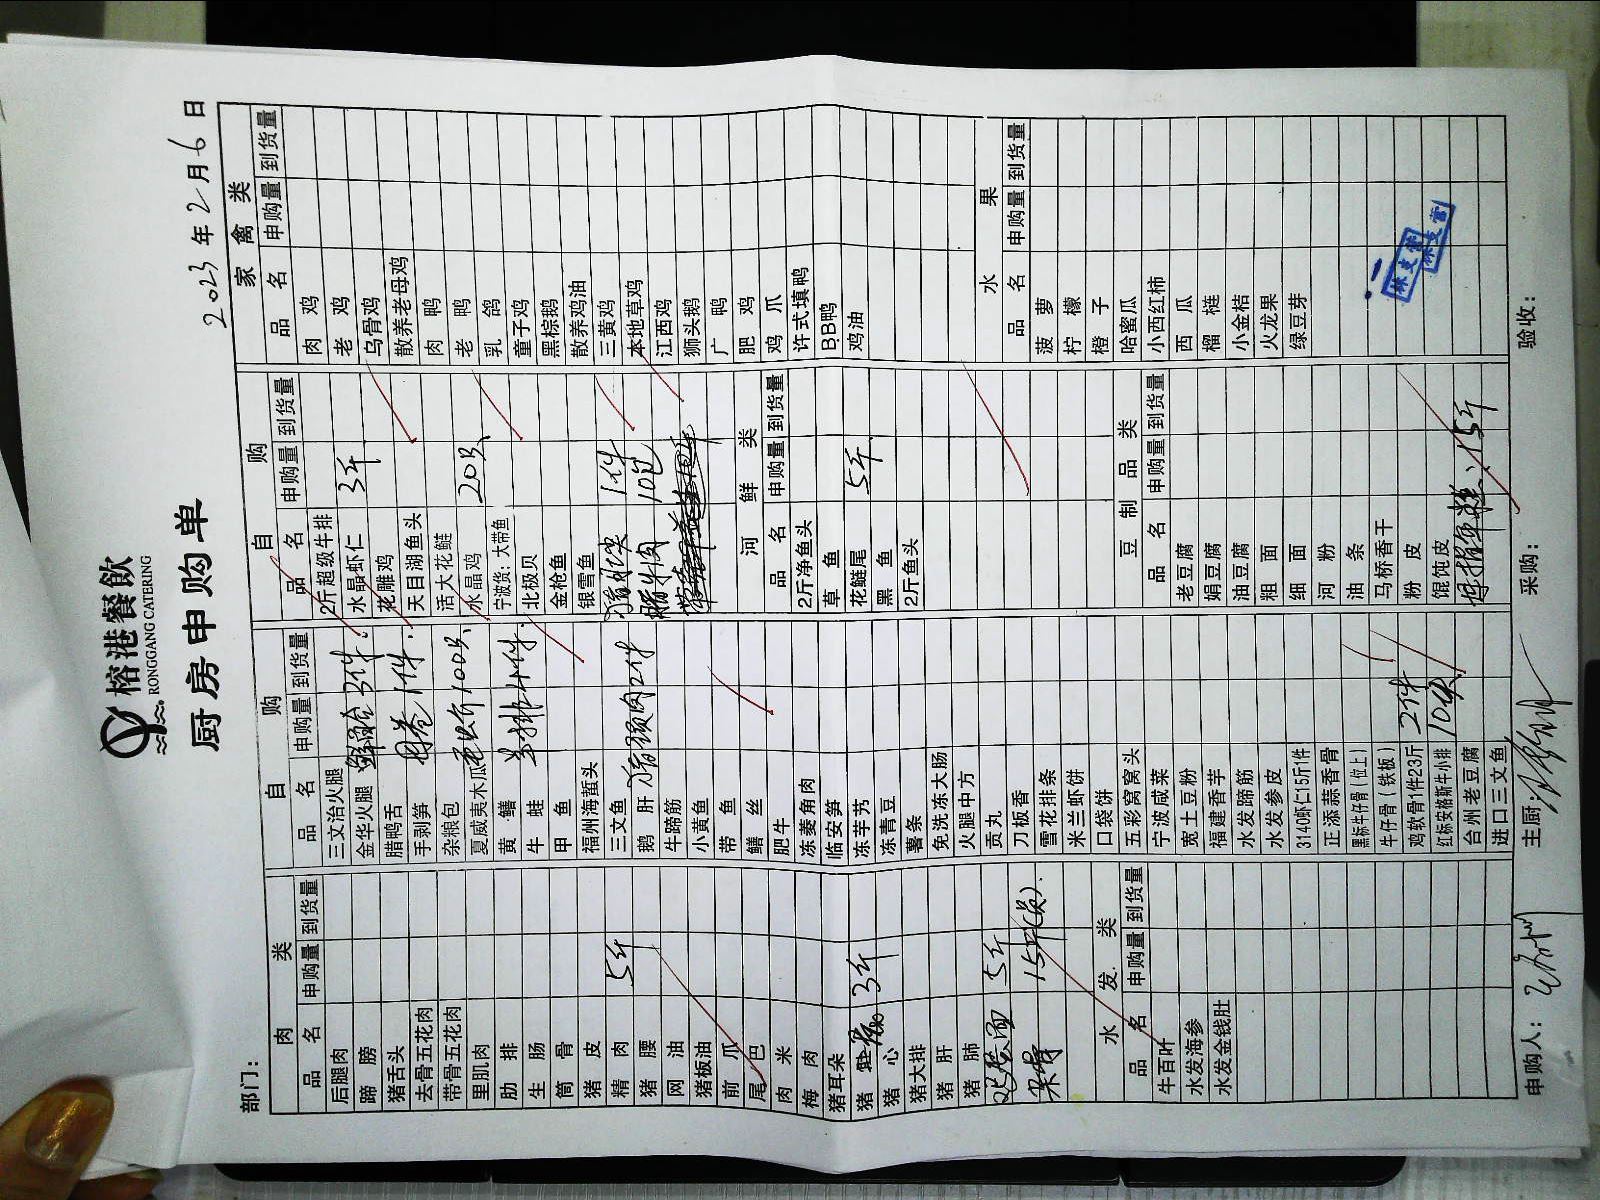 榕港餐飲
RONGGANG CATERING
厨房申购单
部门：
2023年2月6日
肉类
品名 申购量 到货量
后腿肉
蹄膀
猪舌头
去骨五花肉
带骨五花肉
里肌肉
肋排
生肠
筒骨
猪皮
精肉 5斤
猪腰
网油
猪板油
前爪
尾巴
肉米
梅肉
猪耳朵
猪 3斤
猪心
猪大排
猪肝
猪肺
5斤
15斤
水发类
品名 申购量 到货量
牛百叶
水发海参
水发金钱肚
自购
品名 申购量 到货量
三文治火腿
金华火腿 3件
腊鸭舌
手剥笋 1件
杂粮包
夏威夷木瓜 100只
黄鳝
牛蛙 4件
甲鱼
福州海蜇头
三文鱼
鹅肝 猪颈肉2件
牛蹄筋
小黄鱼
带鱼
鳝丝
肥牛
冻菱角肉
临安笋
冻芋艿
冻青豆
薯条
免洗冻大肠
火腿中方
贡丸
刀板香
雪花排条
米兰虾饼
口袋饼
五彩窝窝头
宁波咸菜
宽土豆粉
福建香芋
水发蹄筋
水发参皮
3140虾仁15斤1件
正添蒜香骨
黑标牛仔骨（位上）
牛仔骨（铁板）
鸡软骨1件23斤 2件
红标安格斯牛小排
台州老豆腐
进口三文鱼
自购
品名 申购量 到货量
2斤超级牛排
水晶虾仁 3斤
花雕鸡
天目湖鱼头
活大花鲢
水晶鸡 20只
宁波货：大带鱼
北极贝
金枪鱼
银雪鱼
1件
腊牛肉 10包
河鲜类
品名 申购量 到货量
2斤净鱼头
草鱼
花鲢尾 5斤
黑鱼
2斤鱼头
豆制品类
品名 申购量 到货量
老豆腐
娟豆腐
油豆腐
粗面
细面
河粉
油条
马桥香干
粉皮
馄饨皮
15斤
家禽类
品名 申购量 到货量
肉鸡
老鸡
乌骨鸡
散养老母鸡
肉鸭
老鸭
乳鸽
童子鸡
黑棕鹅
散养鸡油
三黄鸡
本地草鸡
江西鸡
狮头鹅
广鸭
肥鸡
鸡爪
许式填鸭
BB鸭
鸡油
水果
品名 申购量 到货量
菠萝
柠檬
橙子
哈蜜瓜
小西红柿
西瓜
榴梿
小金桔
火龙果
绿豆芽
申购人： 主厨： 采购： 验收：